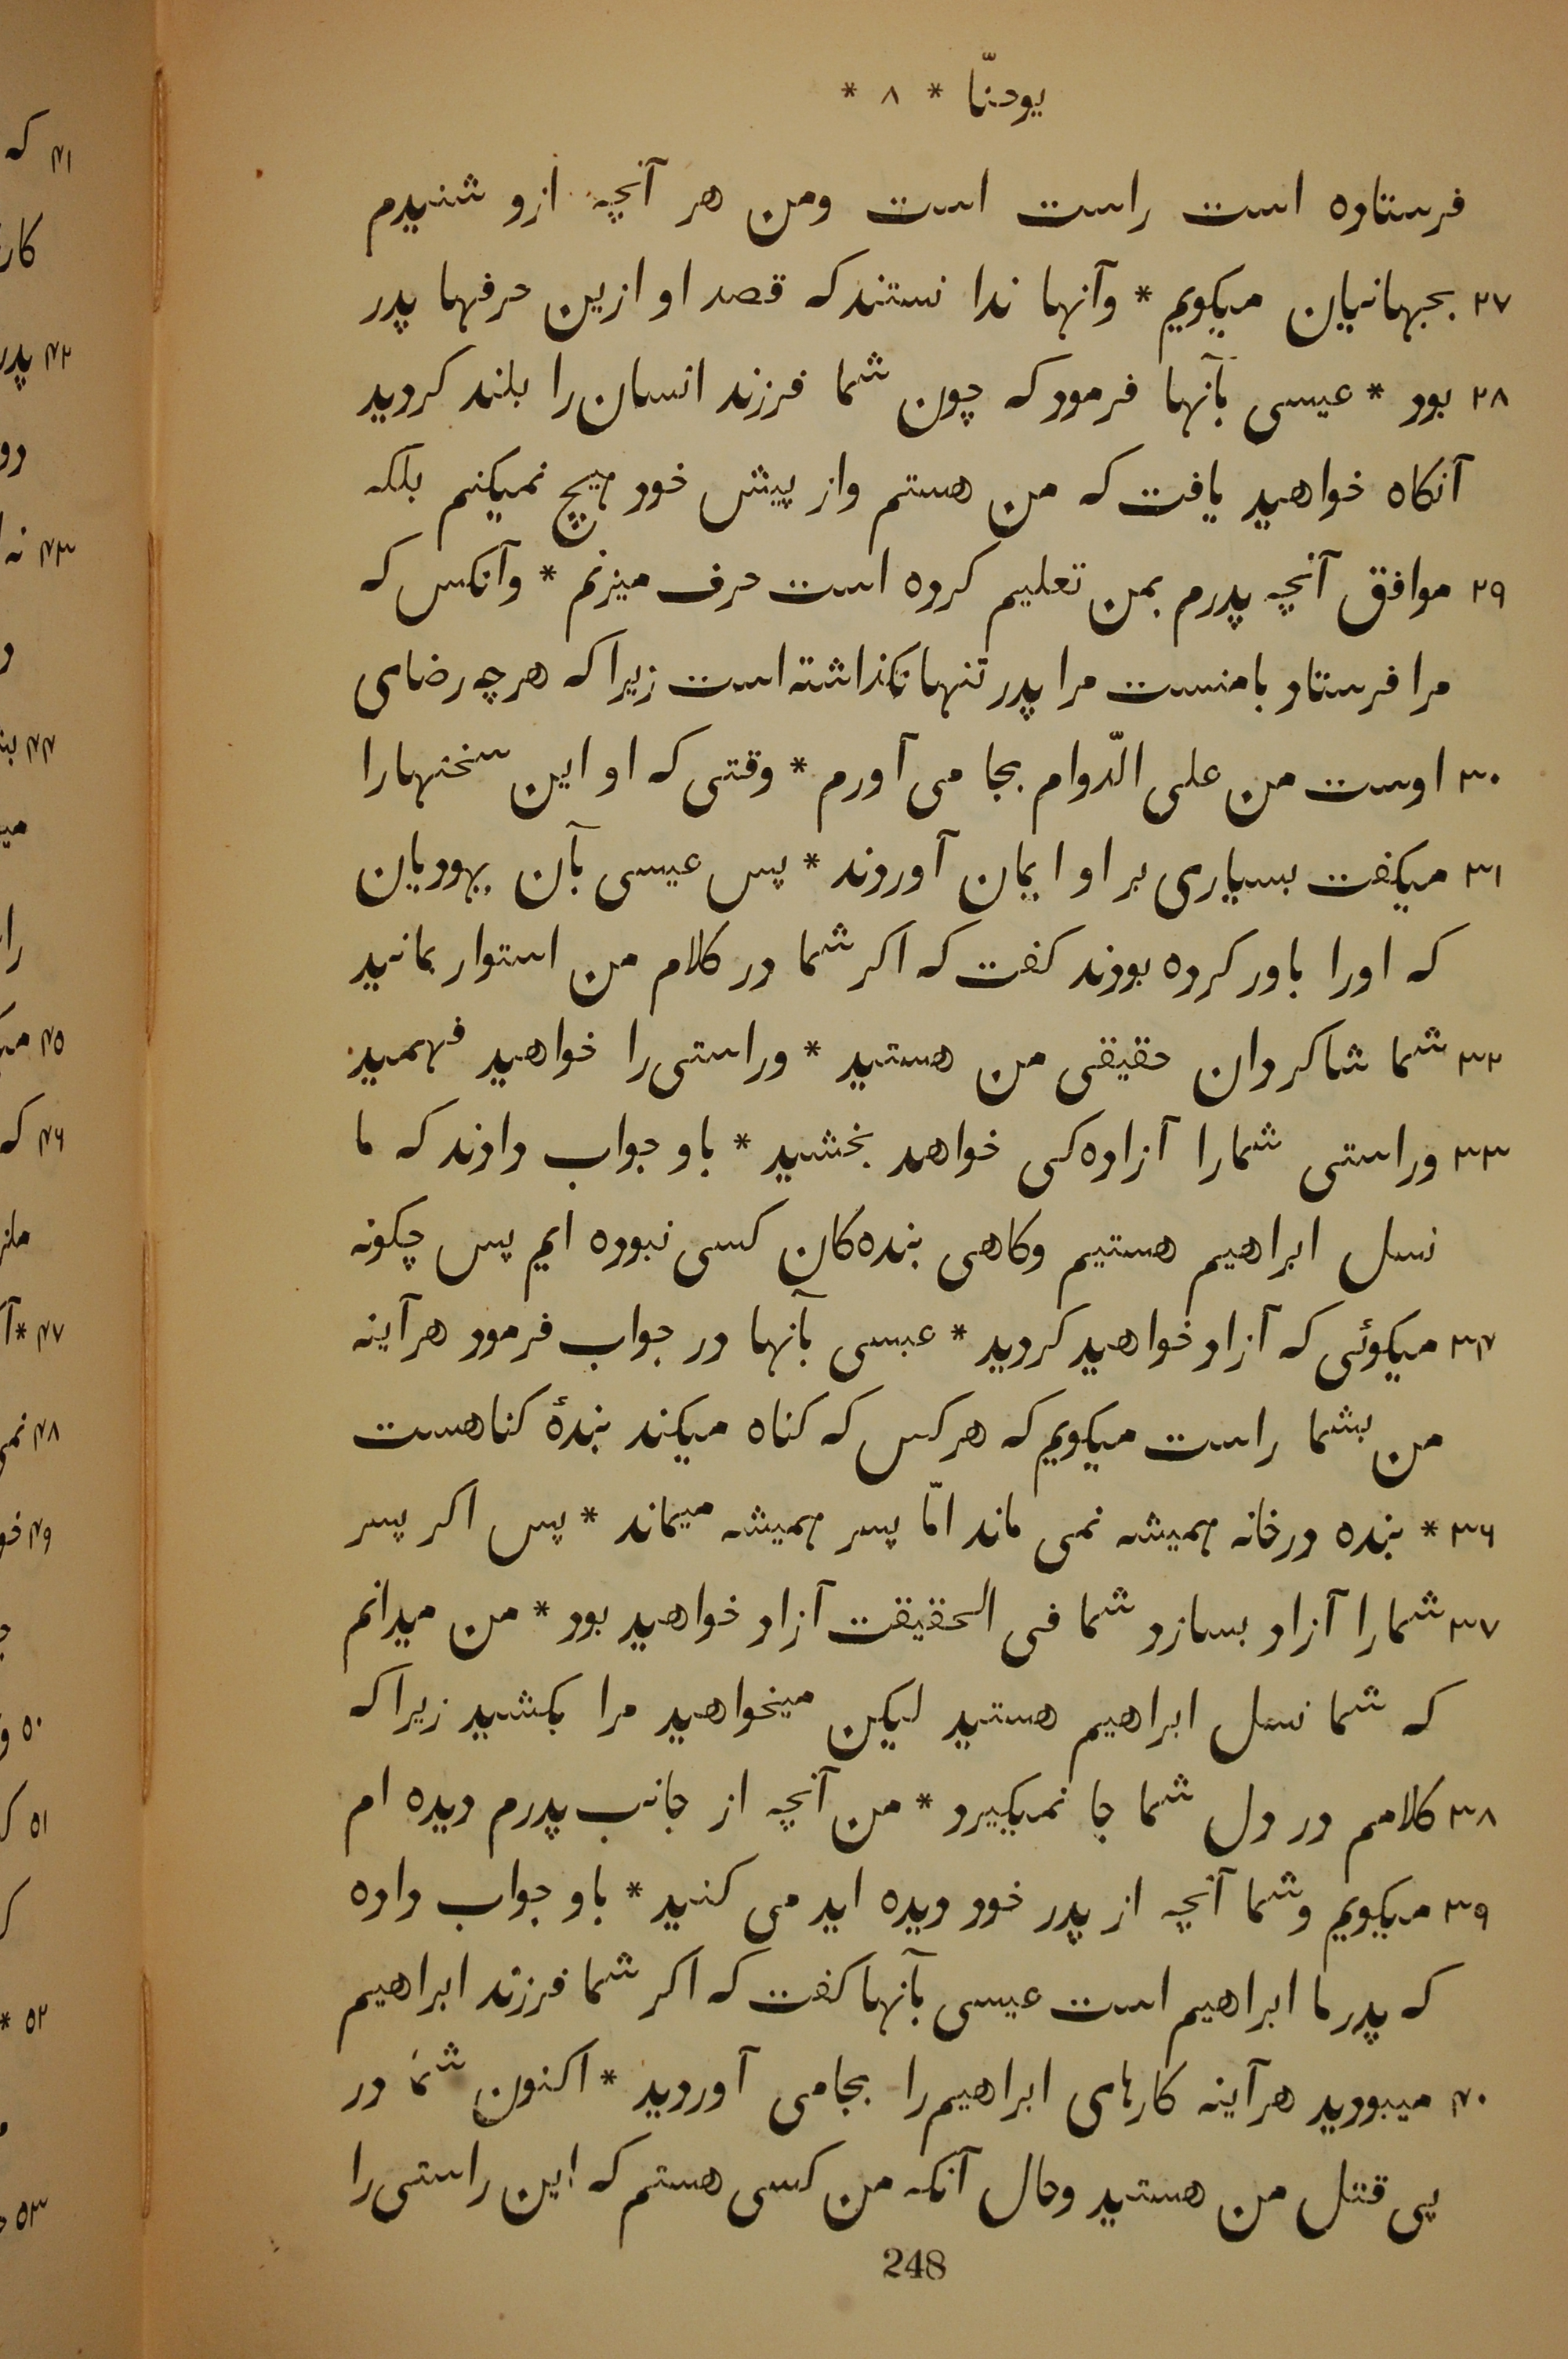 یوحنّا * ۸ *
فرستاده است راست است ومن هر آنچه ازو شنیدم
۲۷ بجهانیان میکویم * وآنها ندا نستند که قصد او ازین حرفها پدر
۲۸ بود * عیسی بآنها فرمود که چون شما فرزند انسان را بلند کردید
آنکاه خواهید یافت که من هستم واز پیش خود هیچ نمیکنم بلکه
۲۹ موافق آنچه پدرم بمن تعلیم کرده است حرف میزنم * وآنکس که
مرا فرستاد بامنست مرا پدر تنها نکذاشته است زیرا که هرچه رضای
۳۰ اوست من علی الدّوام بجا می آورم * وقتی که او این سخنهارا
۳۱ میکفت بسیاری بر او ایمان آوردند * پس عیسی بآن یهودیان
که اورا باور کرده بودند کفت که اکر شما در کلام من استوار بمانید
۳۲ شما شاکردان حقیقی من هستید * وراستی را خواهید فهمید
۳۳ وراستی شمارا آزاده کی خواهد بخشید * باو جواب دادند که ما
نسل ابراهیم هستیم وکاهی بنده کان کسی نبوده ایم پس چکونه
۳۴ میکوئی که آزاد خواهید کردید * عیسی بآنها در جواب فرمود هرآینه
من بشما راست میکویم که هر کس که کناه میکند بندهٔ کناهست
۳۶ * بنده درخانه همیشه نمی ماند امّا پسر همیشه میماند * پس اکر پسر
۳۷ شمارا آزاد بسازد شما فی الحقیقت آزاد خواهید بود * من میدانم
که شما نسل ابراهیم هستید لیکن میخواهید مرا بکشید زیرا که
۳۸ کلامم در دل شما جا نمیکیرد * من آنچه از جانب پدرم دیده ام
۳۹ میکویم وشما آنچه از پدر خود دیده اید می کنید * باو جواب داده
که پدر ما ابراهیم است عیسی بآنها کفت که اکر شما فرزند ابراهیم
۴۰ میبودید هرآینه کارهای ابراهیم را بجامی آوردید * اکنون شما در
پی قتل من هستید وحال آنکه من کسی هستم که این راستی را
248